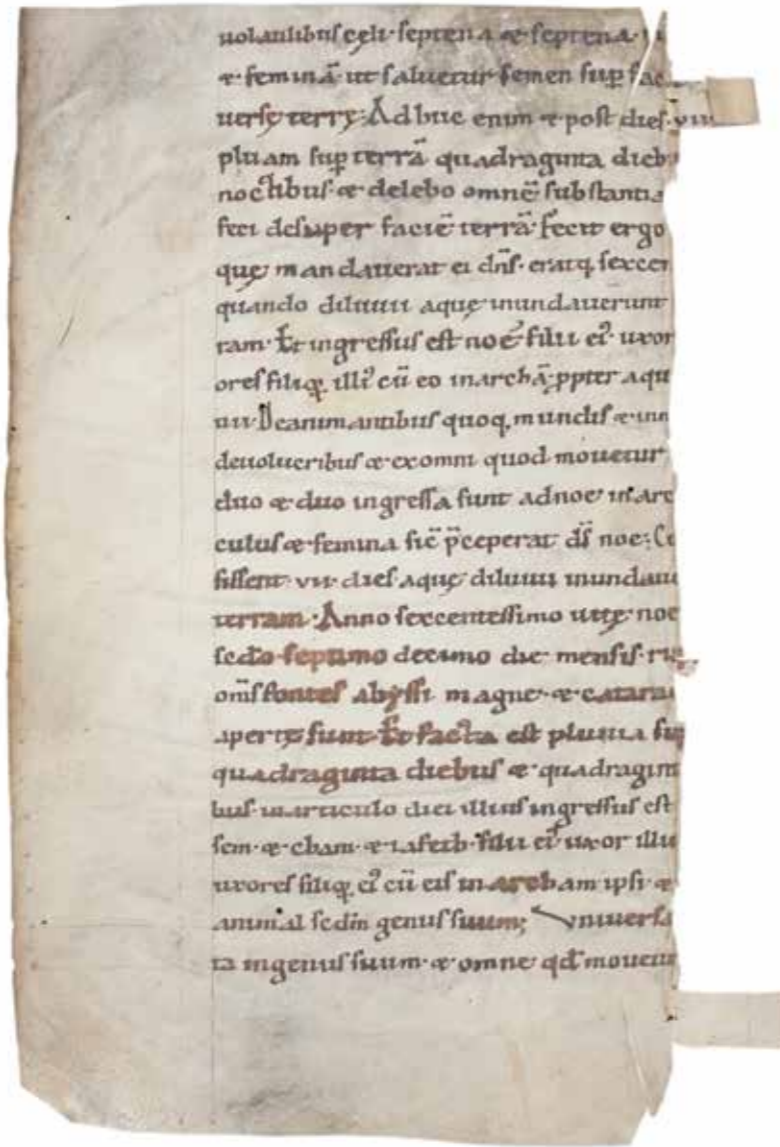 uolatilibus cęli· septena & septena·
& feminā ut saluetur semen sup̄ fac
uersę terrę· Adhuc enim & post dies· vii
pluam sup̄ terrā quadraginta dieb;
noctibus· & delebo omnē substantiā
feci desuper faciē terrā· fecit ergo
quę mandauerat ei dn̄s· eratq; sexcen
quando diluuii aquę inundauerunt
ram· Et ingressus est noe· filii ei᷒ uxor
ores filioꝝ illi᷒ cū eo in archā· ꝓpter aqu
uii· De animantibus quoq; mundis & inm
de uolucribus & ex omni quod mouetur
duo & duo ingressa sunt ad noe· in arc
culus & femina sic̄ p̄ceperat ds̄ noe:
sissent· vii· dies aquę diluuii inundau
terram· Anno sexcentessimo uitę noe
sedo septimo decimo die mensis· ru
om̄s fontes abyssi magne· & catarac
apertę sunt· Et facta est pluuia sup
quadraginta diebus & quadragint
bus· in articulo diei illius ingressus est
sem· & cham· & iafeth· filii ei᷒ uxor illiu
uxores filioꝝ ei᷒ cū eis in archam ipsi &
animal sedin genus suum; vniuersa
ta in genus suum· & omne qd̄ mouetur